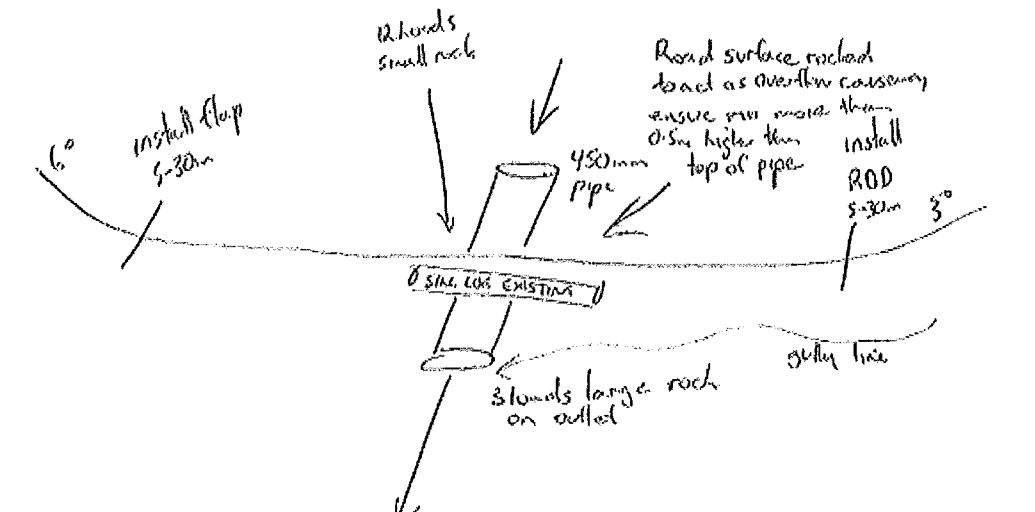 12 loads
small rock
Road surface rocked
to act as overflow causeway
ensure no more than
0.5m higher than
top of pipe
6°
install flap
5-30m
450mm
pipe
install
ROD
5-30m
3°
LOG EXISTING
gully line
3 loads large rock
on outlet